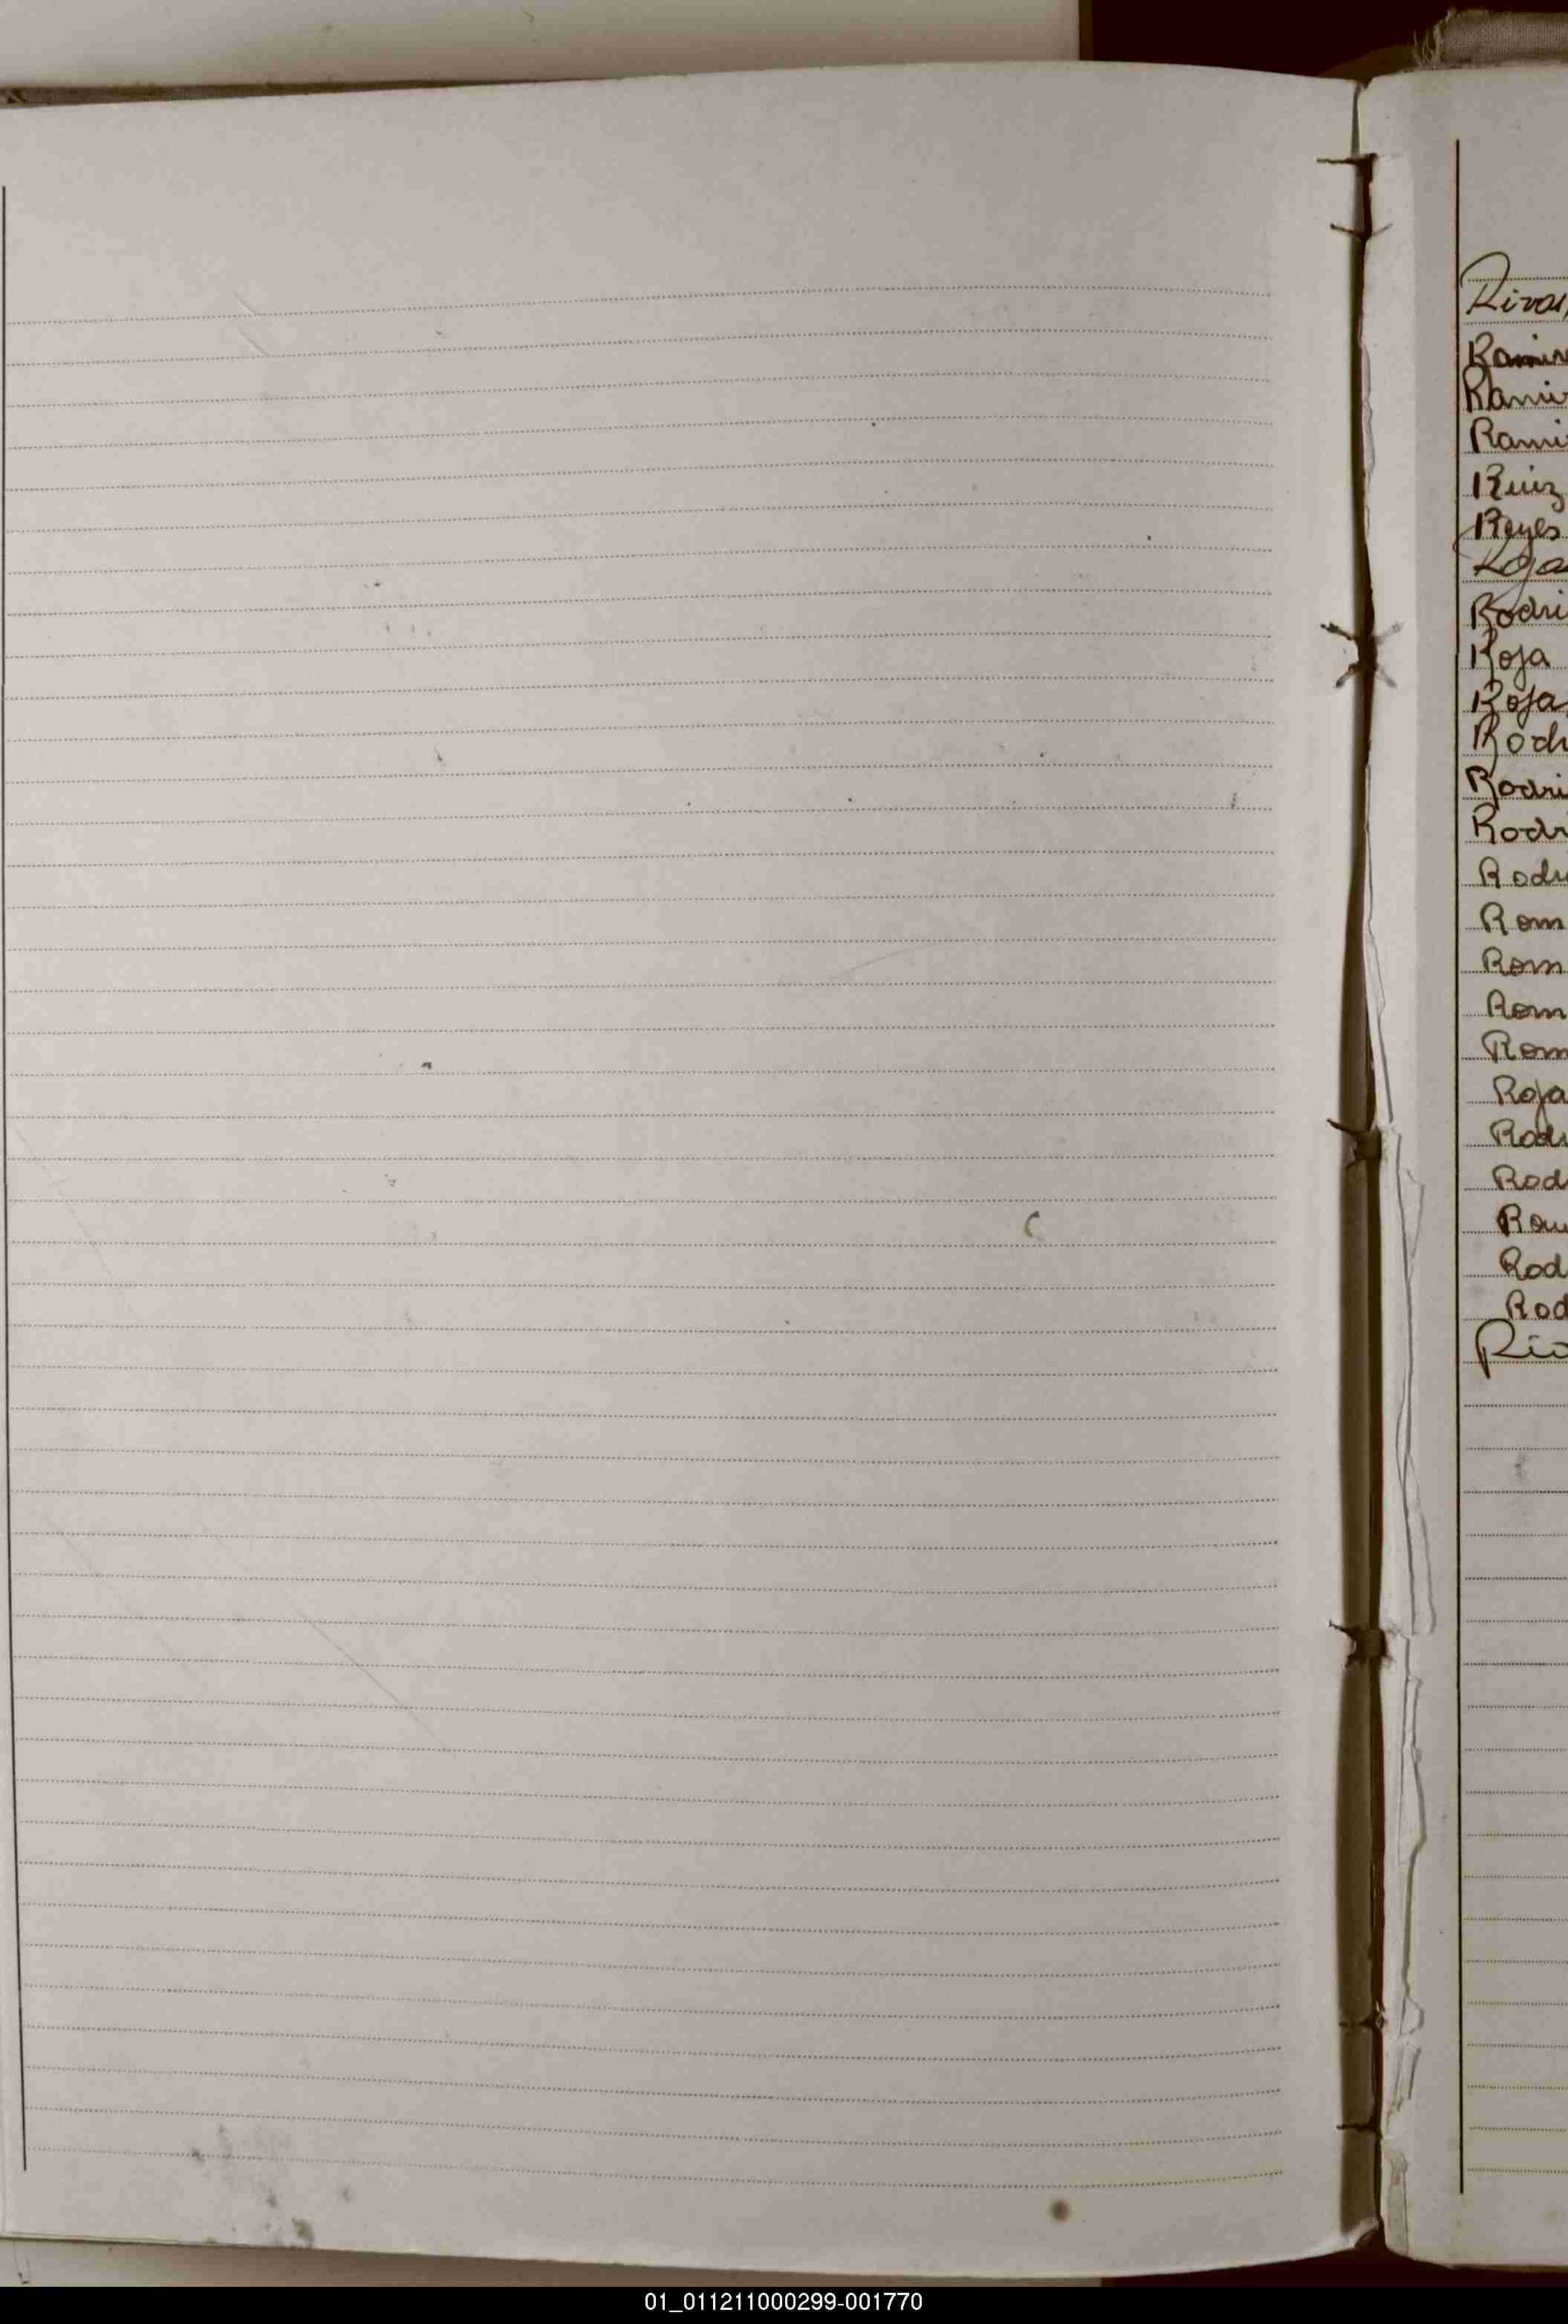 Rivas
Ramir
Ramir
Rami
Ruiz
Reyes
Roja
Rodri
Roja
Roja
Rodr
Rodri
Rodri
Rodri
Rom
Rom
Rom
Rom
Roja
Rodr
Rod
Rom
Rod
Rod
Rio
01_011211000299-001770